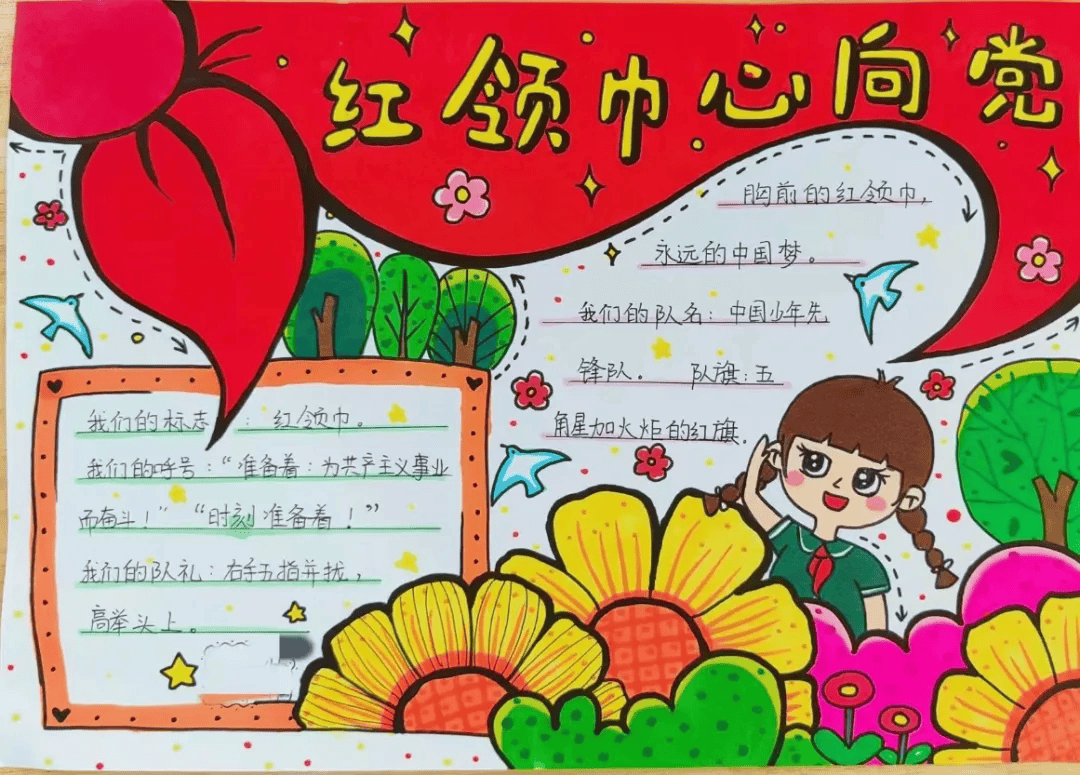 红领巾心向党
胸前的红领巾，
永远的中国梦。
我们的队名：中国少年先
锋队。 队旗：五
角星加火炬的红旗.
我们的标志 ： 红领巾。
我们的呼号：“准备着：为共产主义事业
而奋斗！” “时刻准备着！”
我们的队礼：右手五指并拢，
高举头上。